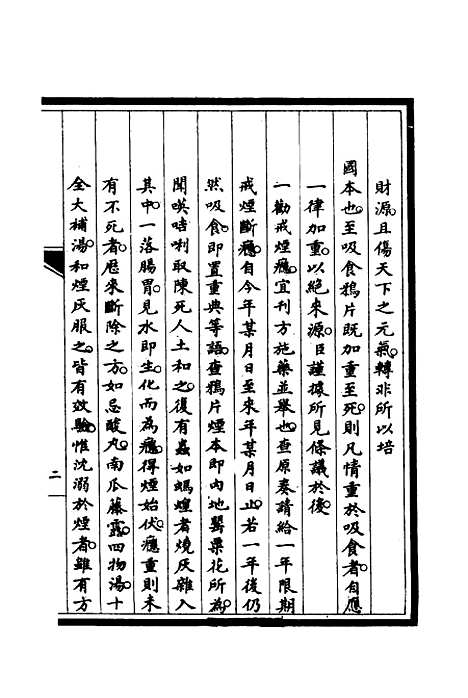 財源且傷天下之元氣轉非所以培
國本也至吸食鴉片既加重至死則凡情重於吸食者自應
一律加重以絕來源臣謹據所見條議於後
一勸戒煙癮宜刊方施藥並舉也查原奏請給一年限期
戒煙斷癮自今年某月日至來年某月日止若一年後仍
然吸食即置重典等語查鴉片煙本即內地罌粟花所為
聞㗸咭唎取陳死人土和之復有蟲如螞蝗者燒灰雜入
其中一落腸胃見水即生化而為癮得煙始伏癮重則未
有不死者歷來斷除之方如忌酸丸南瓜藤露四物湯十
全大補湯和煙灰服之皆有效驗惟沈溺於煙者雖有方
二